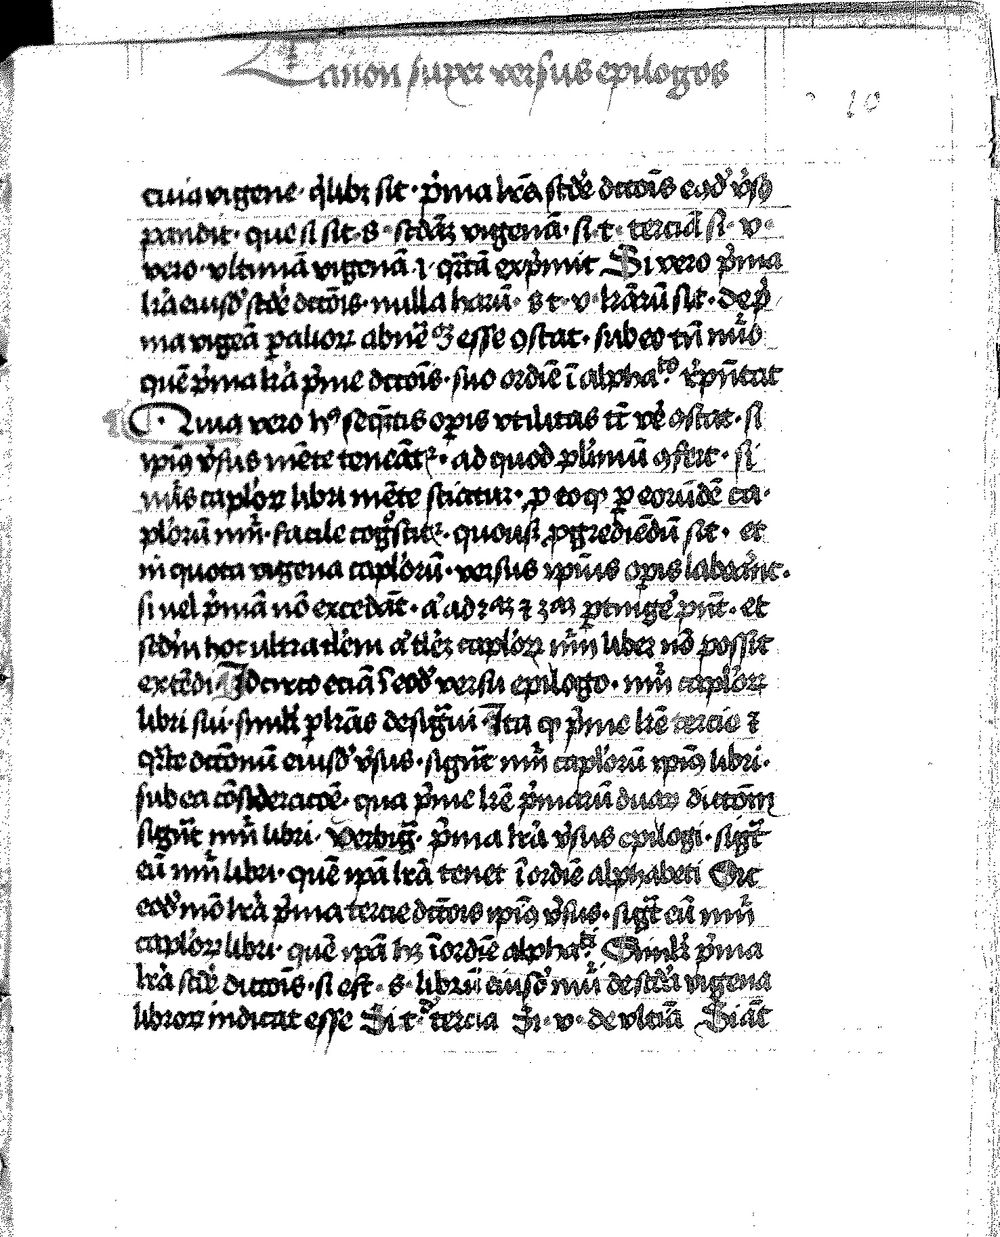 Canon super versus epilogos
10
cuia vigene · q̃libꝫ sit · p̃ma lr̃a sc̃de dictõis eiꝰd̃ ṽsꝰ
pandit · que si sit · s · sc̃daꝫ vigenã · si · t · terciã si · v ·
vero · vltimã vigenã · i · qr̃tã exp̃mit Si vero p̃ma
lr̃a eiusd̃ sc̃de dictõis · nulla harũ · s t · v · lr̃arũ sit · de p̃
ma vigẽa ꝑ alioꝝ esse ꝯstat · sub eo tñ nũo
quẽ p̃ma lr̃a p̃me dictõis · suo ordĩe ĩ alphaᵗᵒ · rep̃ñtat
Quia vero hꝰ seqñtis oꝑis vtilitas tc̃ vẽ ꝯstat · si
ip̃iꝰ ṽsus mẽte teneãtr̃ · ad quod pl̃imũ ꝯfert · si
nũs cap̃loꝝ libri mẽte sciatur · ꝓ eo qꝫ ꝑ eorũdẽ ca
pl̃orũ nũ · facile cog̃scitr̃ · quousqꝫ ꝓgrediẽdũ sit · et
in quota vigena capl̃orũ · versus ip̃ius oꝑis labeãt ·
si uel p̃mã nõ excedãt · aũ ad 2ᵃꝫ ⁊ 3ᵃꝫ ꝑtinge p̃nt · et
sc̃dm hoc ultra capl̃oꝝ nũ liber nõ possit
extẽdi · Idcirco eciã ĩ eod̃ versu epilogo · nũ capl̃oꝝ
libri sui · simlr̃ ꝑ lr̃as desig̃ui · Ita qꝫ p̃me lr̃e tercie ⁊
qr̃te dictõnũ eiusd̃ ṽsus · sigñt nũ capl̃orũ ip̃iꝰ libri ·
sub ea cõsideracõe · qua p̃me lr̃e p̃marũ duaꝝ dictõnũ
sigñt nũ libri · Verbig̃ · p̃ma lr̃a ṽsus epilogi · sig̃t
eũ nũ libri · quẽ ip̃a lr̃a tenet ĩ ordĩe alphabeti Sic
eod̃ mõ lr̃a p̃ma tercie dictõis ip̃iꝰ ṽsus · sig̃t eũ nũ
capl̃oꝝ libri · quẽ ip̃a hꝫ ĩ ordĩe alphaᵗⁱ Similr̃ p̃ma
lr̃a sc̃de dictõis · si est · s · librũ eiusd̃ nũi de sc̃da vigena
libroꝝ indicat esse Si t · de tercia Si · v · de vltiã Si aũt